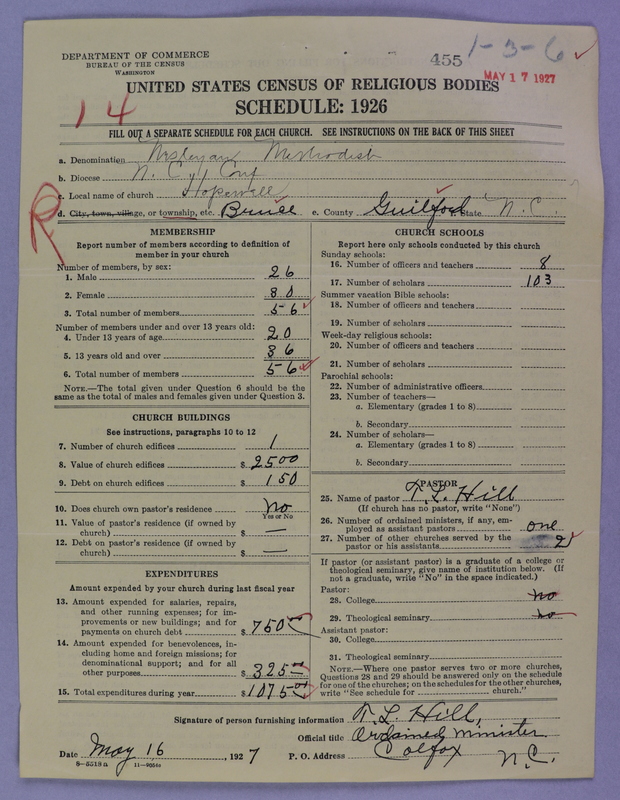 DEPARTMENT OF COMMERCE
BUREAU OF THE CENSUS
WASHINGTON
455
1-3-6
MAY 17 1927
UNITED STATES CENSUS OF RELIGIOUS BODIES
SCHEDULE: 1926
14
FILL OUT A SEPARATE SCHEDULE FOR EACH CHURCH. SEE INSTRUCTIONS ON THE BACK OF THIS SHEET
a. Denomination Wesleyan Methodist
b. Diocese N. C. Conf
c. Local name of church Hopewell
R
d. City, town, village, or township, etc. Bruce e. County Guilford State N. C.
MEMBERSHIP
Report number of members according to definition of member in your church
Number of members, by sex:
1. Male 26
2. Female 30
3. Total number of members 56
Number of members under and over 13 years old:
4. Under 13 years of age 20
5. 13 years old and over 36
6. Total number of members 56
NOTE.—The total given under Question 6 should be the same as the total of males and females given under Question 3.
CHURCH BUILDINGS
See instructions, paragraphs 10 to 12
7. Number of church edifices 1
8. Value of church edifices $ 2500
9. Debt on church edifices $ 150
10. Does church own pastor's residence? no
Yes or No
11. Value of pastor's residence (if owned by church) $ —
12. Debt on pastor's residence (if owned by church) $ —
EXPENDITURES
Amount expended by your church during last fiscal year
13. Amount expended for salaries, repairs, and other running expenses; for improvements or new buildings; and for payments on church debt $ 750 00
14. Amount expended for benevolences, including home and foreign missions; for denominational support; and for all other purposes $ 325 00
15. Total expenditures during year $ 1075 00
CHURCH SCHOOLS
Report here only schools conducted by this church
Sunday schools:
16. Number of officers and teachers 8
17. Number of scholars 103
Summer vacation Bible schools:
18. Number of officers and teachers
19. Number of scholars
Week-day religious schools:
20. Number of officers and teachers
21. Number of scholars
Parochial schools:
22. Number of administrative officers
23. Number of teachers—
a. Elementary (grades 1 to 8)
b. Secondary
24. Number of scholars—
a. Elementary (grades 1 to 8)
b. Secondary
PASTOR
25. Name of pastor T. L. Hill
(If church has no pastor, write "None")
26. Number of ordained ministers, if any, employed as assistant pastors one
27. Number of other churches served by the pastor or his assistants 2
If pastor (or assistant pastor) is a graduate of a college or theological seminary, give name of institution below. (If not a graduate, write "No" in the space indicated.)
Pastor:
28. College no
29. Theological seminary no
Assistant pastor:
30. College
31. Theological seminary
NOTE.—Where one pastor serves two or more churches, Questions 28 and 29 should be answered only on the schedule for one of the churches; on the schedules for the other churches, write "See schedule for church."
Signature of person furnishing information T. L. Hill,
Official title Ordained minister
Date May 16, 1927 P. O. Address Colfax N.C.
8-5518 a 11-9054c